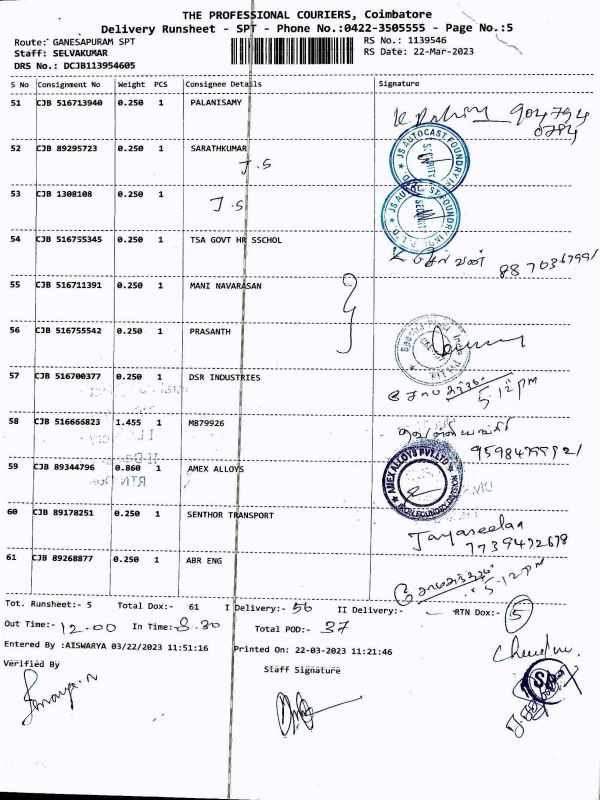 THE PROFESSIONAL COURIERS, Coimbatore
Delivery Runsheet - SPT - Phone No.:0422-3505555 - Page No.:5
Route: GANESAPURAM SPT RS No.: 1139546
Staff: SELVAKUMAR RS Date: 22-Mar-2023
DRS No.: DCJB113954605
S No Consignment No Weight PCS Consignee Details Signature
51 CJB 516713940 0.250 1 PALANISAMY
904794
0784
52 CJB 89295723 0.250 1 SARATHKUMAR
J.S
JS AUTOCAST FOUNDRY
SECURITY
53 CJB 1308108 0.250 1
J.S
54 CJB 516755345 0.250 1 TSA GOVT HR SSCHOL
55 CJB 516711391 0.250 1 MANI NAVARASAN
56 CJB 516755542 0.250 1 PRASANTH
57 CJB 516700377 0.250 1 DSR INDUSTRIES
5.12 PM
58 CJB 516666823 1.455 1 M879926
59 CJB 89344796 0.860 1 AMEX ALLOYS
AMEX ALLOYS PVT LTD
60 CJB 89178251 0.250 1 SENTHOR TRANSPORT
Jayaseelan
61 CJB 89268877 0.250 1 ABR ENG
5.12 PM
Tot. Runsheet:- 5 Total Dox:- 61 I Delivery:- 56 II Delivery:- RTN Dox:- 5
Out Time:- 12.00 In Time:- 8.30 Total POD:- 37
Entered By :AISWARYA 03/22/2023 11:51:16 Printed On: 22-03-2023 11:21:46
Verified By Staff Signature